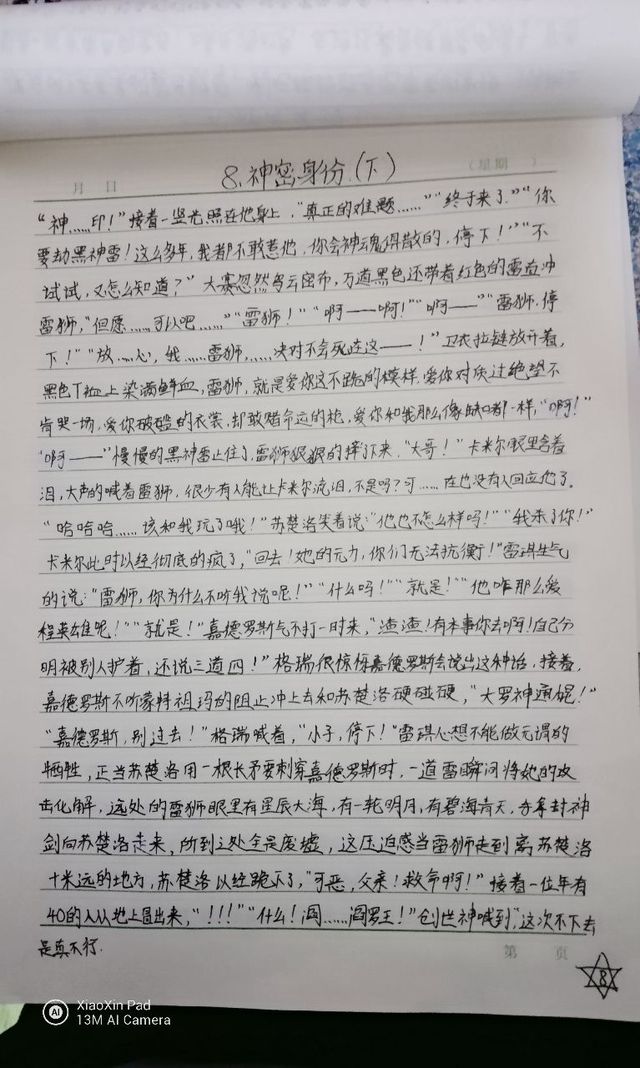 月 日
8.神密身份(下)
(星期 )
"神……印!"接着一竖光照在他身上,"真正的难题……""终于来了""你
要劫黑神雷!这么多年,我都不敢惹他,你会神魂俱散的,停下!""不
试试,又怎么知道?"大赛忽然乌云密布,万道黑色还带着红色的雷直冲
雷狮,"但愿……可以吧……""雷狮!""啊——啊!""啊——""雷狮,停
下!""放……心,我……雷狮,……决对不会死在这——!"卫衣拉链放开着,
黑色T裇上染满鲜血,雷狮,就是爱你这不跪的模样,爱你对灰过绝望不
肯哭一场,爱你破碎的衣裳,却敢赌命运的枪,爱你和我那么像缺口都一样,"啊!"
"啊——"慢慢的黑神雷止住了,雷狮狠狠的摔了下来,"大哥!"卡米尔眼里含着
泪,大声的喊着雷狮,很少有人能让卡米尔流泪,不是吗?可……在也没有人回应他了。
"哈哈哈……该和我玩了哦!"苏楚洛笑着说:"他也不怎么样吗!""我杀了你!"
卡米尔此时以经彻底的疯了,"回去!她的元力,你们无法抗衡!"雷琪生气
的说:"雷狮,你为什么不听我说呢!""什么吗!""就是!""他咋那么爱
程英雄呢!""就是!"嘉德罗斯气不打一时来,"渣渣!有本事你去啊!自己分
明被别人护着,还说三道四!"格瑞很惊讶嘉德罗斯会说出这种话,接着,
嘉德罗斯不听蒙特祖玛的阻止冲上去和苏楚洛硬碰硬,"大罗神通棍!"
"嘉德罗斯,别过去!"格瑞喊着,"小子,停下!"雷琪心想不能做无谓的
牺牲,正当苏楚洛用一根长矛要刺穿嘉德罗斯时,一道雷瞬间将她的攻
击化解,远处的雷狮眼里有星辰大海,有一轮明月,有碧海青天,手拿封神
剑向苏楚洛走来,所到之处全是废墟,这压迫感当雷狮走到离苏楚洛
十米远的地方,苏楚洛以经跪下了,"可恶,父亲!救命啊!"接着一位年有
40的人从地上冒出来,"!!!""什么!阎……阎罗王!"创世神喊到,"这次不下去
是真不行.
第 页
8
XiaoXin Pad
13M AI Camera